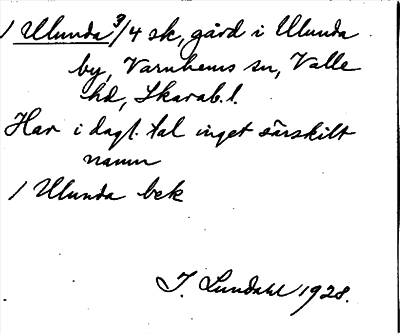 / Ulunda 3/4 sk, gård i Ulunda
by, Varnhems sn, Valle
hd, Skarab. l.
Har i dagl. tal inget särskilt
namn
/ Ulunda bek
I. Lundahl 1928.